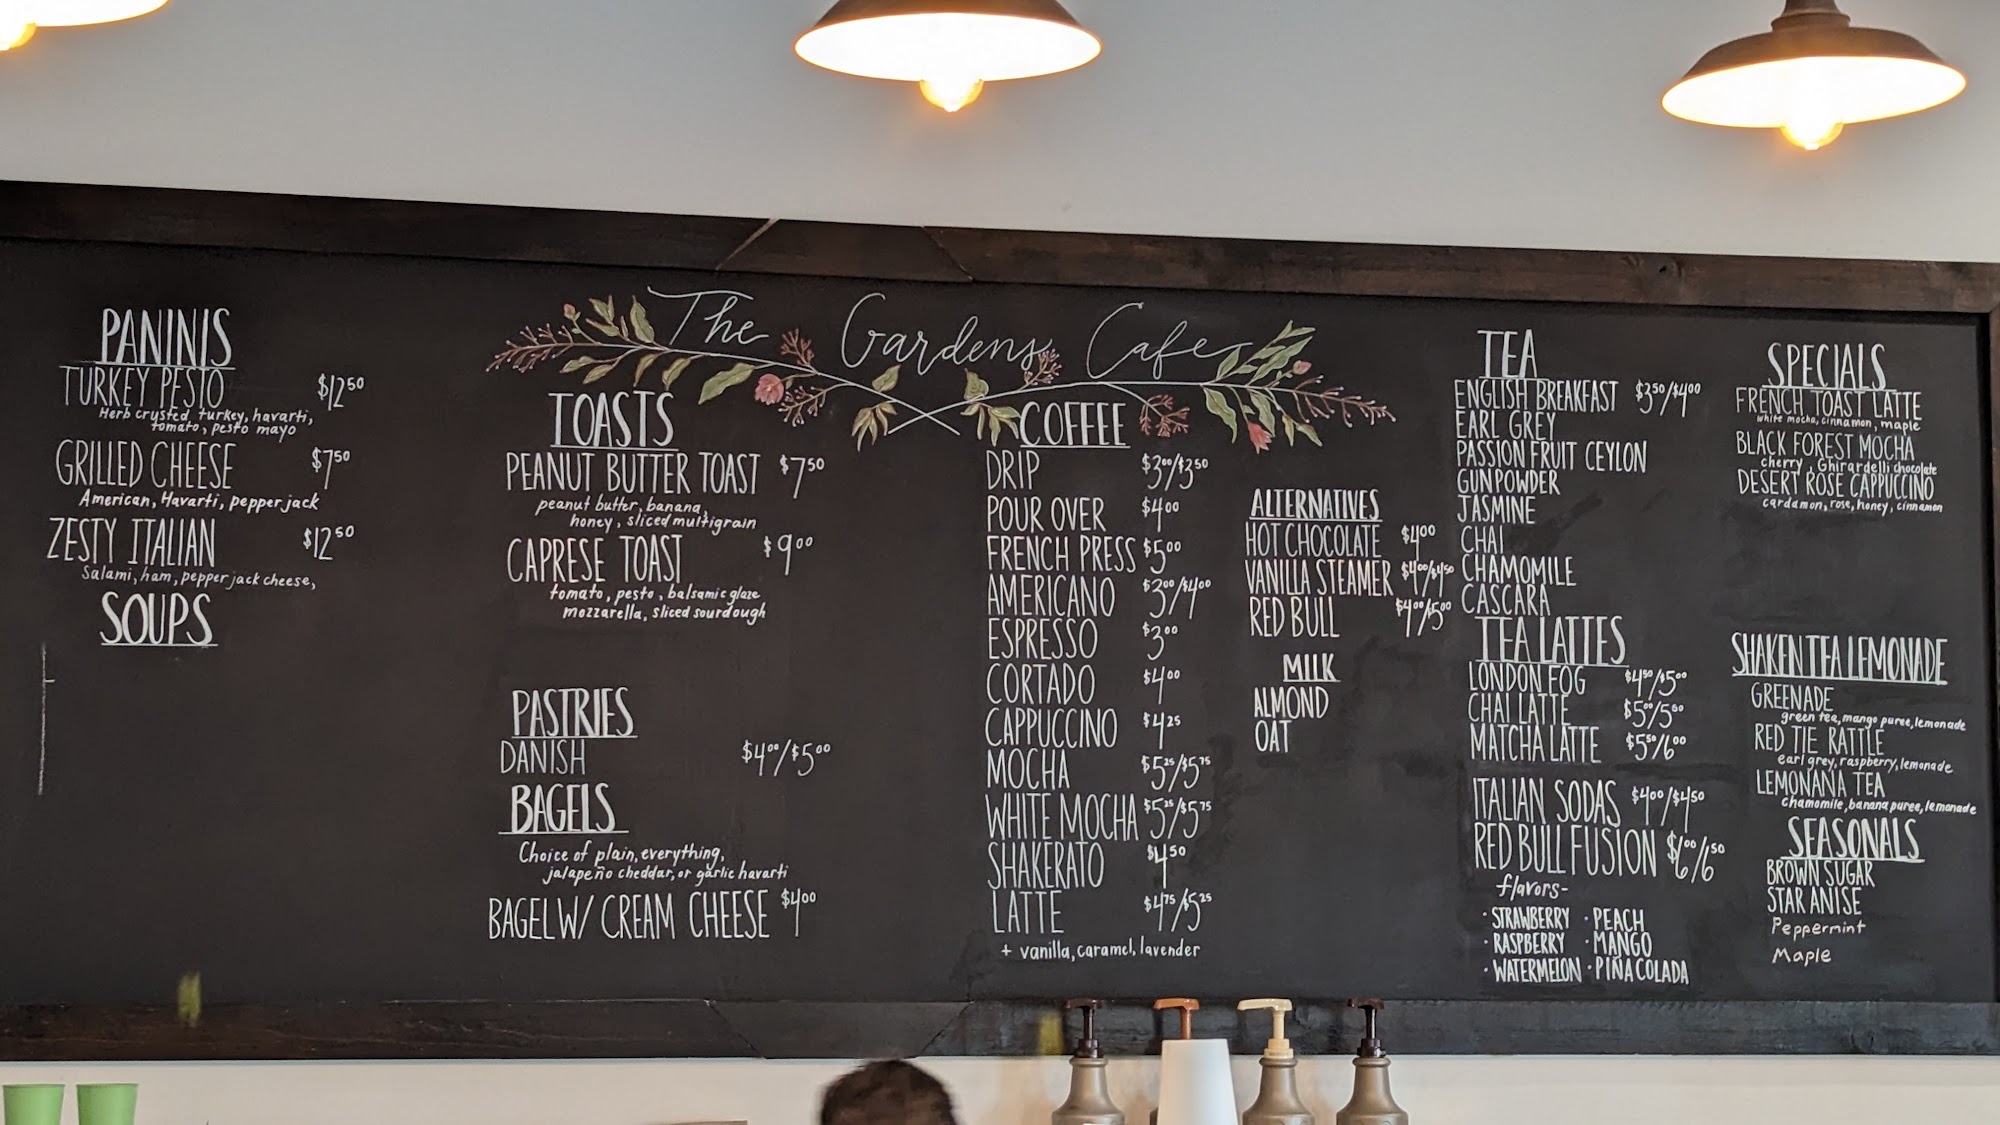 The Gardens Cafe
PANINIS
TURKEY PESTO $12.50
Herb crusted turkey, havarti,
tomato, pesto mayo
GRILLED CHEESE $7.50
American, Havarti, pepper jack
ZESTY ITALIAN $12.50
Salami, ham, pepper jack cheese,
SOUPS
TOASTS
PEANUT BUTTER TOAST $7.50
peanut butter, banana,
honey, sliced multigrain
CAPRESE TOAST $9.00
tomato, pesto, balsamic glaze
mozzarella, sliced sourdough
PASTRIES
DANISH $4.00/$5.00
BAGELS
Choice of plain, everything,
jalapeño cheddar, or garlic havarti
BAGEL W/ CREAM CHEESE $4.00
COFFEE
DRIP $3.00/$3.50
POUR OVER $4.00
FRENCH PRESS $5.00
AMERICANO $3.00/$4.00
ESPRESSO $3.00
CORTADO $4.00
CAPPUCCINO $4.25
MOCHA $5.25/$5.75
WHITE MOCHA $5.25/$5.75
SHAKERATO $4.50
LATTE $4.75/5.25
+ vanilla, caramel, lavender
ALTERNATIVES
HOT CHOCOLATE $4.00
VANILLA STEAMER $4.00/$4.50
RED BULL $4.00/5.00
MILK
ALMOND
OAT
TEA
ENGLISH BREAKFAST $3.50/$4.00
EARL GREY
PASSION FRUIT CEYLON
GUNPOWDER
JASMINE
CHAI
CHAMOMILE
CASCARA
TEA LATTES
LONDON FOG $4.50/$5.00
CHAI LATTE $5.00/5.50
MATCHA LATTE $5.50/6.00
ITALIAN SODAS $4.00/$4.50
RED BULL FUSION $6.00/6.50
flavors-
· STRAWBERRY · PEACH
· RASPBERRY · MANGO
· WATERMELON · PIÑA COLADA
SPECIALS
FRENCH TOAST LATTE
white mocha, cinnamon, maple
BLACK FOREST MOCHA
cherry, Ghirardelli chocolate
DESERT ROSE CAPPUCCINO
cardamon, rose, honey, cinnamon
SHAKEN TEA LEMONADE
GREENADE
green tea, mango puree, lemonade
RED TIE RATTLE
earl grey, raspberry, lemonade
LEMONANA TEA
chamomile, banana puree, lemonade
SEASONALS
BROWN SUGAR
STAR ANISE
Peppermint
Maple